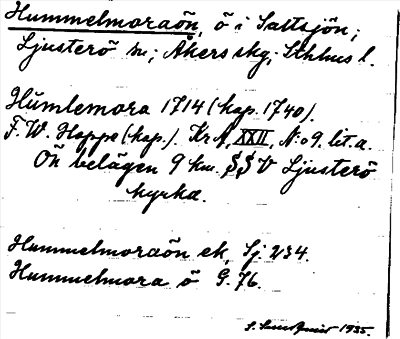 Hummelmoraön, ö i Saltsjön;
Ljusterö sn; Åkers skg; Sthlms l.
Humlemora 1714 (kap. 1740).
F. W. Hoppe (kap.). Kr A, XXII, N:o 9. lit. a.
Ön belägen 9 km. SSV Ljusterö
kyrka.
Hummelmoraön ek, Sj. 234.
Hummelmora ö G. 76.
1935.